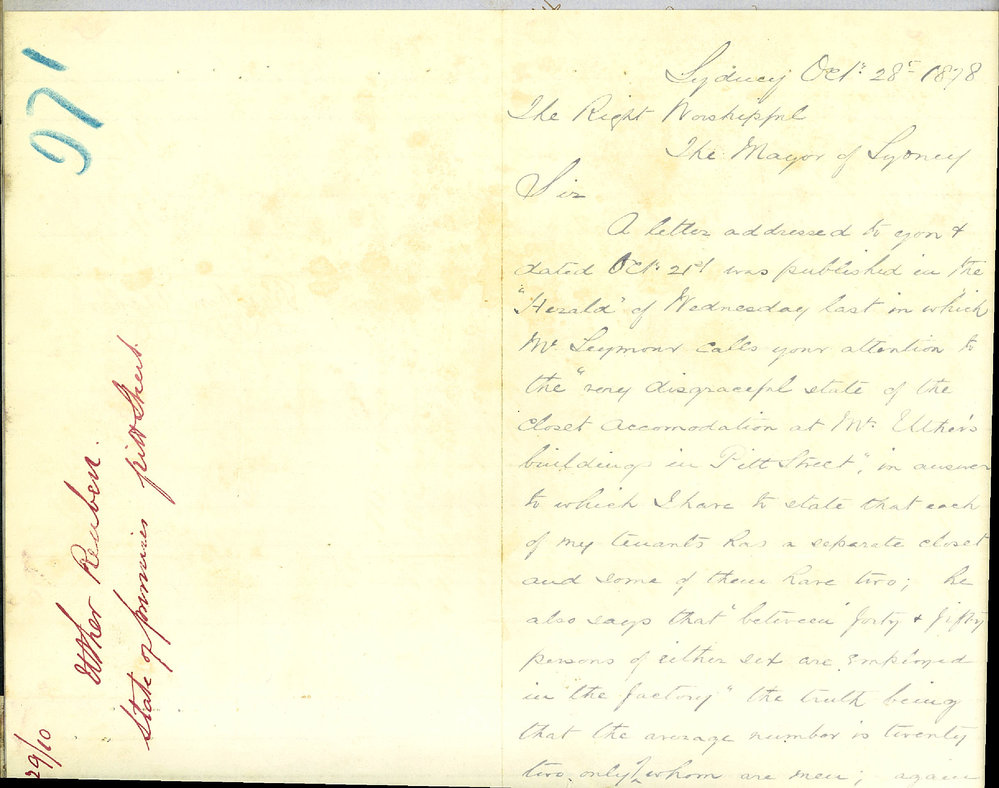 971
Uther Reuben.
State of premises Pitt Street.
29/10
Sydney Oct: 28th 1878
The Right Worshipful
The Mayor of Sydney
Sir
A letter addressed to you &
dated Oct: 21st was published in the
"Herald" of Wednesday last in which
Mr. Seymour calls your attention to
the "very disgraceful state of the
closet accomodation at Mr. Uther's
buildings in Pitt Street", in answer
to which I have to state that each
of my tenants has a separate closet
and some of them have two; he
also says that "between forty & fifty
persons of either sex are employed
in "the factory" the truth being
that the average number is twenty
two only whom are men; again